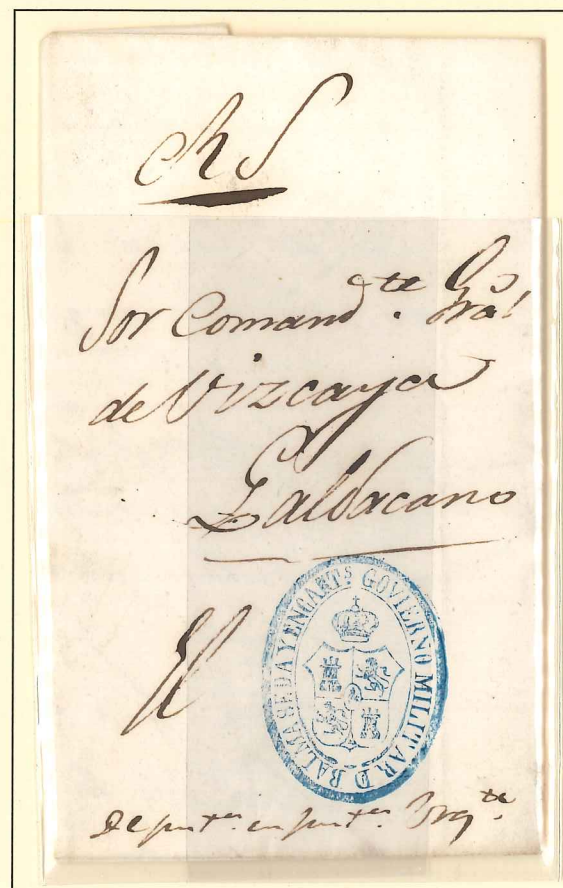 RS
Sor Comand.te Gral
de Vizcaya
Galdacano
GOVIERNO MILITAR D BALMASEDA Y ENCART.S
El
De punt.o en punt.o Urg.te